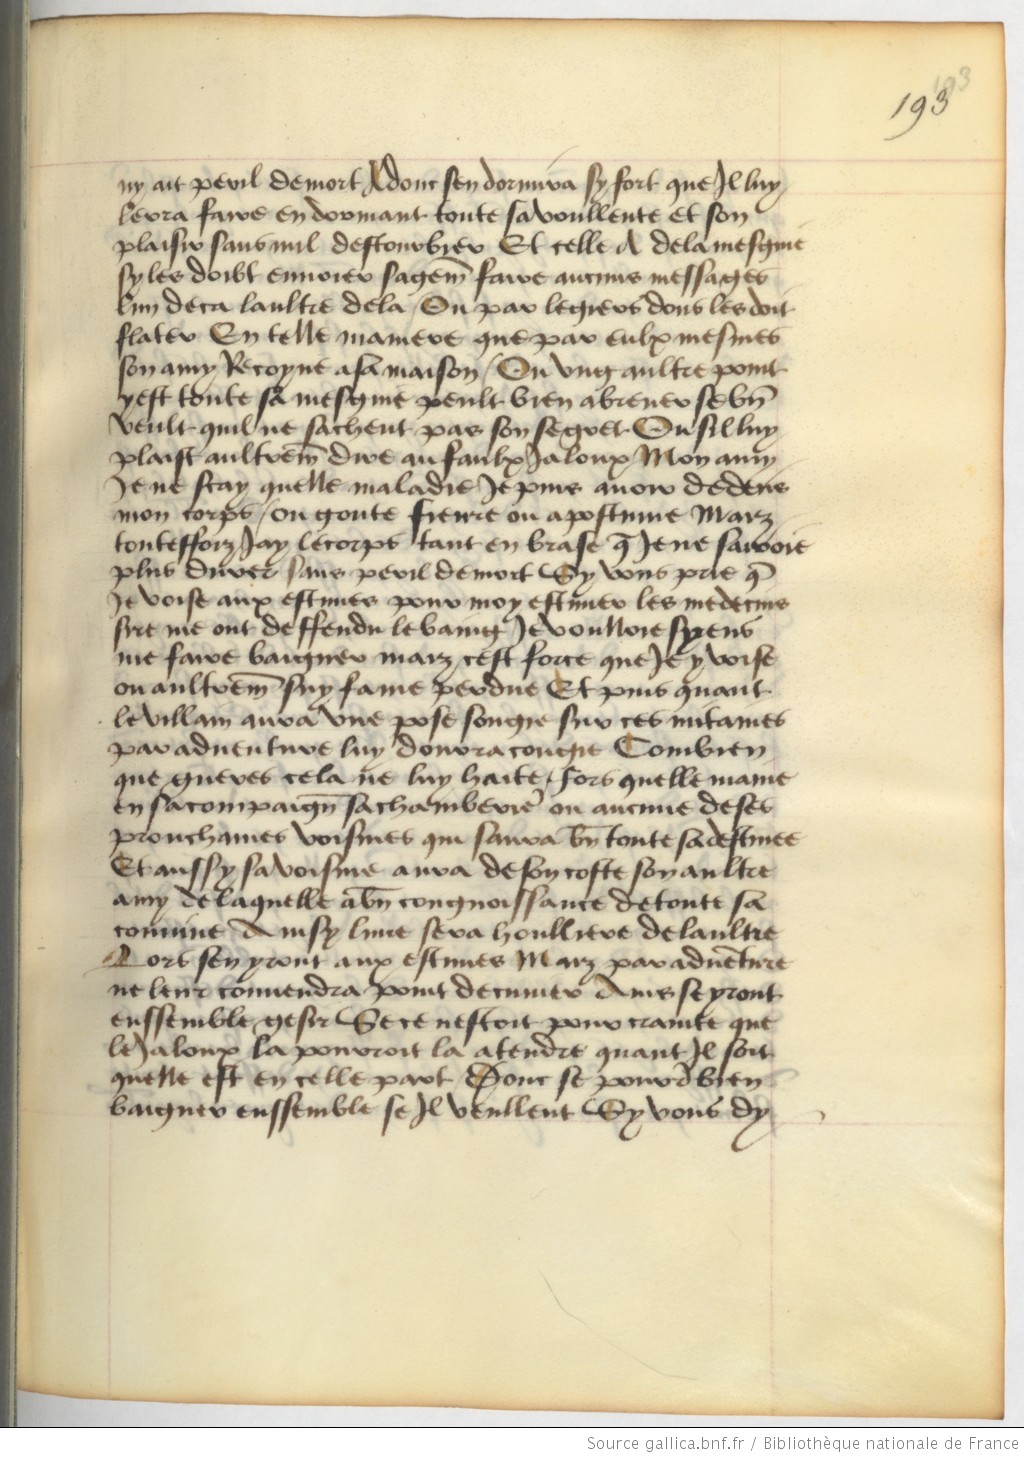 193
ny ait peril de mort Adonc sen dormira sy fort que Il luy
lerra faire en dormant toute sa voullente et son
plaisir sans nul destourbier Et celle A de la mesgnie
sy les doibt envoier sagem̄ faire aucuns messages
lun deca laultre dela / Ou par legiers dons les doit
flater En telle maniere que par eulx mesmes
son amy Recoyve a sa maison / Ou vng aultre point
yest toute sa mesgnie peult bien abrever se bn̄
veult quil ne sachent pas son segret Ou sil luy
plaist aultrem̄ dire au faulx Jaloux Mon amy
Je ne scay quelle maladie Je puis avoir dedens
mon corps / ou goute fievre ou apostume Marz
toutefforz Jay le corps tant en brase q̄ Je ne sauroie
plus durer sans peril de mort Sy vous prie q̄
Je voise aux estuves pour moy estuver les medecins
sire me ont deffendu le baing Je voulloie syens
me faire baigner marz cest force que Je y voise
ou aultrem̄ suy fame perdue Et puis quant
le villain aura vne pose songie sur ces mitaines
par adventure luy donrra congie Combien
que gueres cela ne luy haite, fors quelle maine
en sa compaign̄ sa chamberie' ou aucune de ses
prouchaines voisines qui saura bn̄ toute sa destinee
Et aussy sa voisine aura de son coste son aultre
amy de laquelle a bn̄ congnoissance de toute sa
comine Ainsy lune sera houlliere de laultre
Lors sen yront aux estuves Marz par adventure
ne leur convendra point de cuvier Ains se yront
enssemble gesir Se ce nestoit pour crainte que
le Jaloux la pourroit la atendre quant Il soit
quelle est en celle part Donc se pourrōt bien
baigner enssemble se Il veullent Sy vous dy
Source gallica.bnf.fr / Bibliothèque nationale de France